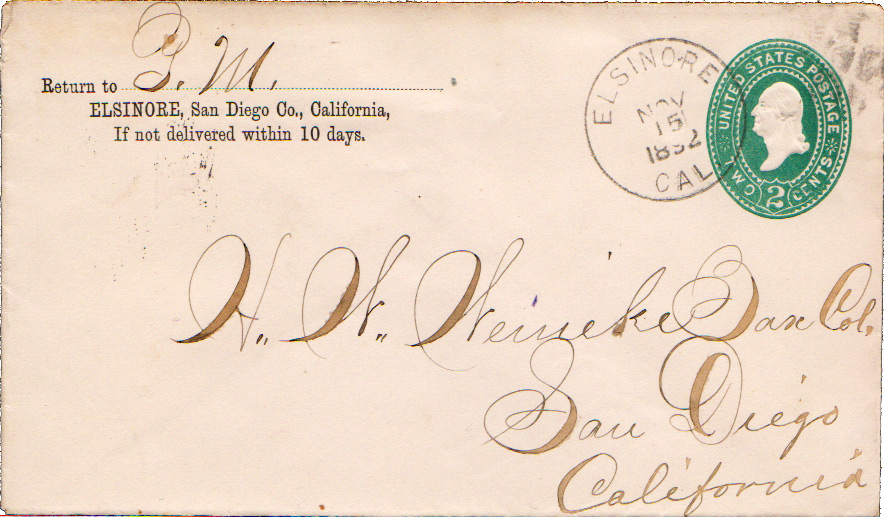 Return to P. M.
ELSINORE, San Diego Co., California,
If not delivered within 10 days.
ELSINORE
NOV
15
1892
CAL
UNITED STATES POSTAGE
TWO 2 CENTS
H. W. Weineke Tax Col.
San Diego
California